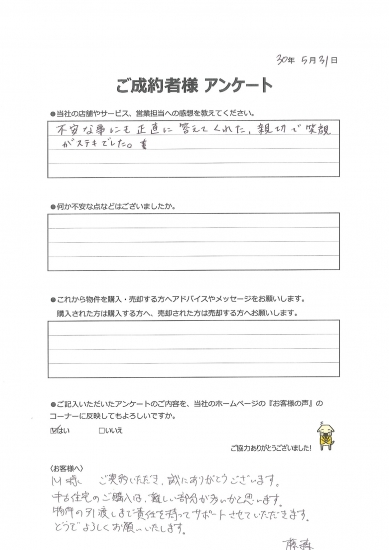 30年 5月31日
ご成約者様 アンケート
●当社の店舗やサービス、営業担当への感想を教えてください。
不安な事にも正直に答えてくれた、親切で笑顔
がステキでした。
●何か不安な点などはございましたか。
●これから物件を購入・売却する方へアドバイスやメッセージをお願いします。
購入された方は購入する方へ、売却された方は売却する方へお願いします。
●ご記入いただいたアンケートのご内容を、当社のホームページの『お客様の声』の
コーナーに反映してもよろしいですか。
☑はい □いいえ
ご協力ありがとうございました!
〈お客様へ〉
M様 ご契約いただき、誠にありがとうございます。
中古住宅のご購入は、難しい部分が多いかと思います。
物件の引渡しまで責任を持ってサポートさせていただきます。
どうぞよろしくお願いいたします。